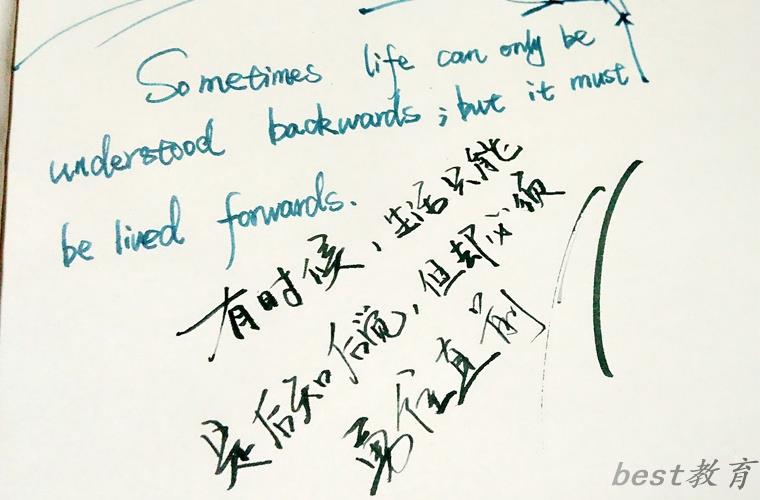 Sometimes life can only be
understood backwards; but it must
be lived forwards.
有时候，生活只能
是后知后觉，但却必须
勇往直前
best教育